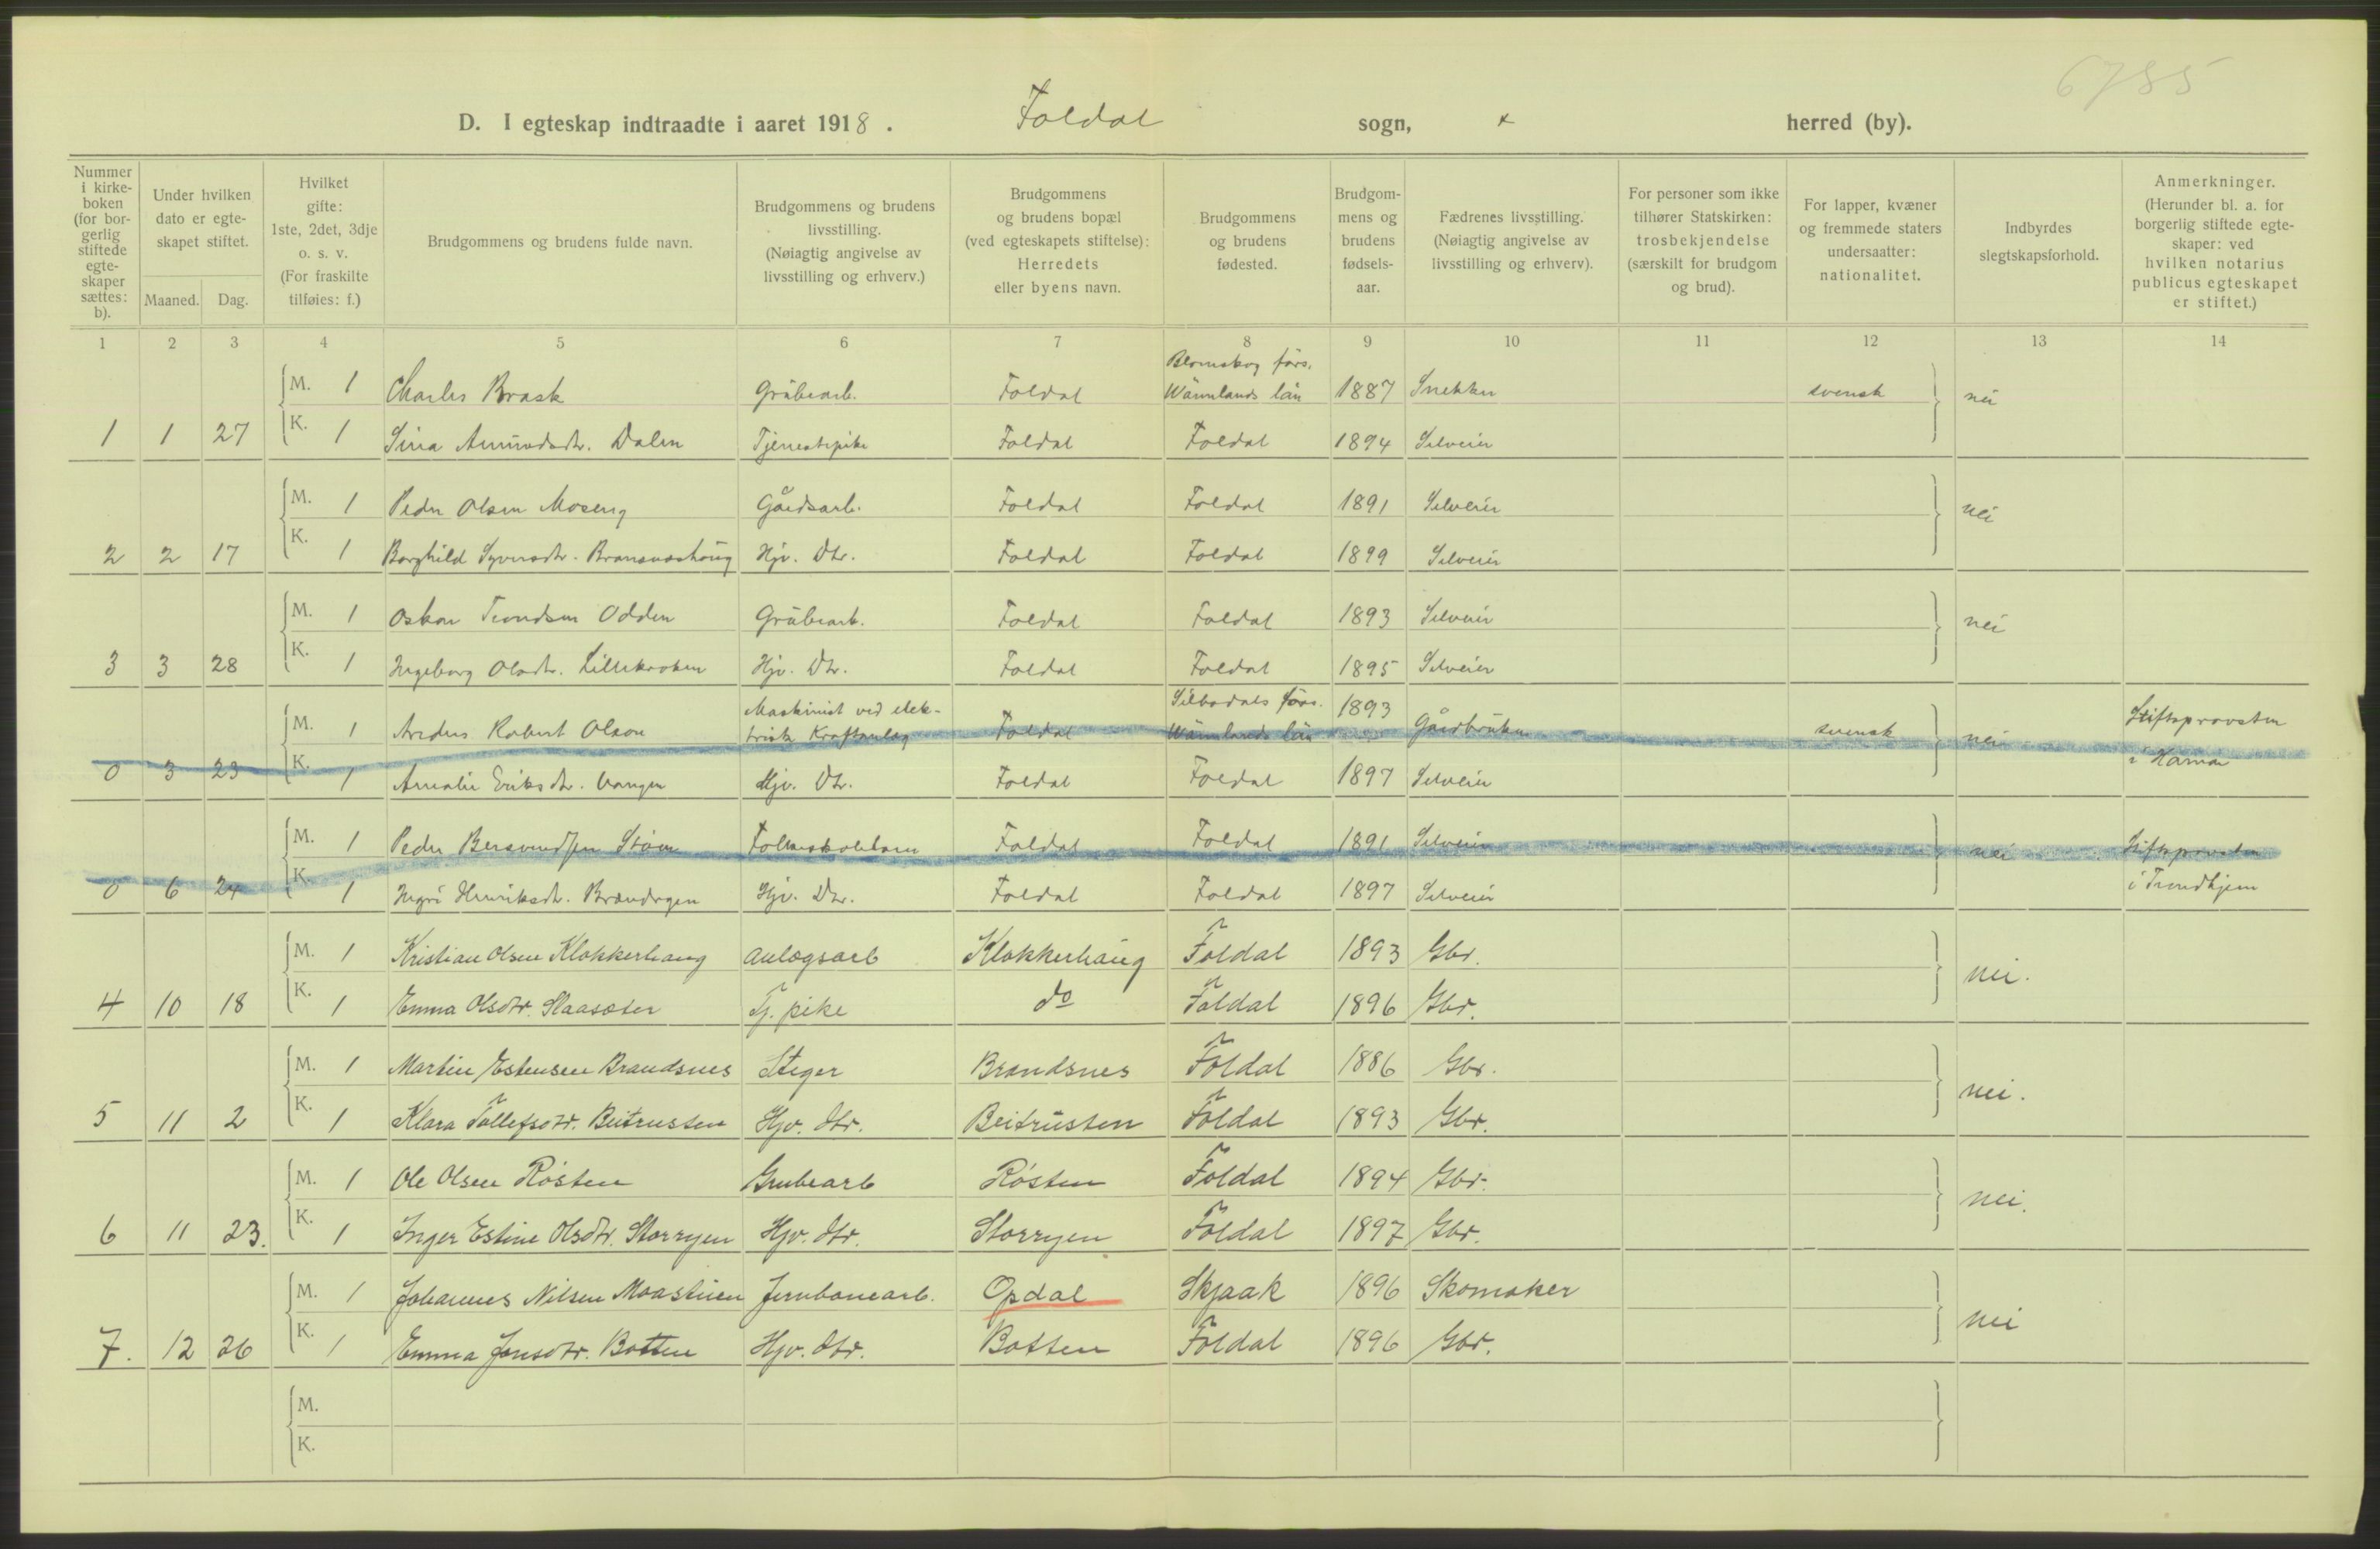 6785
D. I egteskap indtraadte i aaret 1918. Foldal sogn, herred (by).
Nummer i kirkeboken (for borgerlig stiftede egteskaper sættes: b).
Under hvilken dato er egteskapet stiftet.
Maaned. Dag.
Hvilket gifte: 1ste, 2det, 3dje o. s. v. (For fraskilte tilføies: f.)
Brudgommens og brudens fulde navn.
Brudgommens og brudens livsstilling. (Nøiagtig angivelse av livsstilling og erhverv.)
Brudgommens og brudens bopæl (ved egteskapets stiftelse): Herredets eller byens navn.
Brudgommens og brudens fødested.
Brudgommens og brudens fødselsaar.
Fædrenes livsstilling. (Nøiagtig angivelse av livsstilling og erhverv).
For personer som ikke tilhører Statskirken: trosbekjendelse (særskilt for brudgom og brud).
For lapper, kvæner og fremmede staters undersaatter: nationalitet.
Indbyrdes slegtskapsforhold.
Anmerkninger. (Herunder bl. a. for borgerlig stiftede egteskaper: ved hvilken notarius publicus egteskapet er stiftet.)
1 2 3 4 5 6 7 8 9 10 11 12 13 14
Blomskog förs.
M. 1 Charles Brask Grübearb. Foldal Wärmlands län 1887 Snekker svensk nei
1 1 27 K. 1 Sina Amundsdtr. Dalen Tjenestepike Foldal Foldal 1894 Selveier
M. 1 Peder Olsen Moseng Gårdsarb. Foldal Foldal 1891 Selveier nei
2 2 17 K. 1 Borghild Syversdtr. Hjv. Dtr. Foldal Foldal 1899 Selveier
M. 1 Oskar Trondsen Odden Grübearb. Foldal Foldal 1893 Selveier nei
3 3 28 K. 1 Ingeborg Olsdtr. Lillekroken Hjv. Dtr. Foldal Foldal 1895 Selveier
Maskinist ved elek- Silbodals förs. 1893 Stiftsprovsten
M. 1 Anders Robert Olson trisk Kraftanlæg Foldal Wärmlands län Gårdbruker svensk nei
0 3 23 K. 1 Amalie Eriksdtr. Vangen Hjv. Dtr. Foldal Foldal 1897 Selveier i Hamar
M. 1 Peder Bersvendsen Støen Folkeskolelærer Foldal Foldal 1891 Selveier nei Stiftsprovsten
0 6 24 K. 1 Ingri Henriksdtr. Brændvgen Hjv. Dtr. Foldal Foldal 1897 Selveier i Trondhjem
M. 1 Kristian Olsen Klokkerhaug anlægsarb Klokkerhaug Foldal 1893 Gbr. nei.
4 10 18 K. 1 Emma Olsdtr. Slaasæter Tj. pike do Foldal 1896 Gbr.
M. 1 Martin Estensen Brandsnes Stiger Brandsnes Foldal 1886 Gbr. nei.
5 11 2 K. 1 Klara Tollefsdtr. Beitrusten Hjv. dtr. Beitrusten Foldal 1893 Gbr.
M. 1 Ole Olsen Røsten Grubearb Røsten Foldal 1894 Gbr. nei.
6 11 23. K. 1 Inger Estine Olsdtr. Storryen Hjv. dtr. Storryen Foldal 1897 Gbr.
M. 1 Johannes Nilsen Maastuen Jernbanearb. Opdal Skjaak 1896 Skomaker nei
7. 12 26 K. 1 Emma Jonsdtr. Botten Hjv. dtr. Botten Foldal 1896 Gbr.
M.
K.